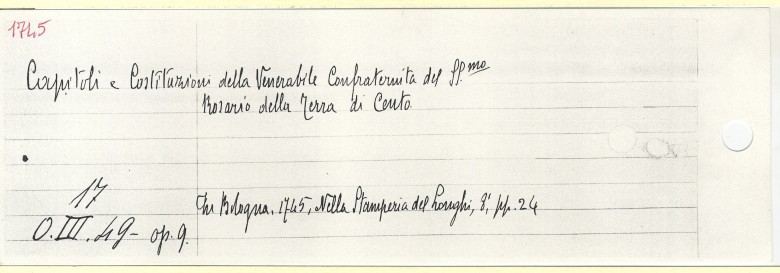 1745
Capitoli e Costituzioni della Venerabile Confraternita del SS.mo
Rosario della Terra di Cento
17
In Bologna, 1745, Nella Stamperia del Longhi, 8°, pp. 24
O.III.49- op.9.